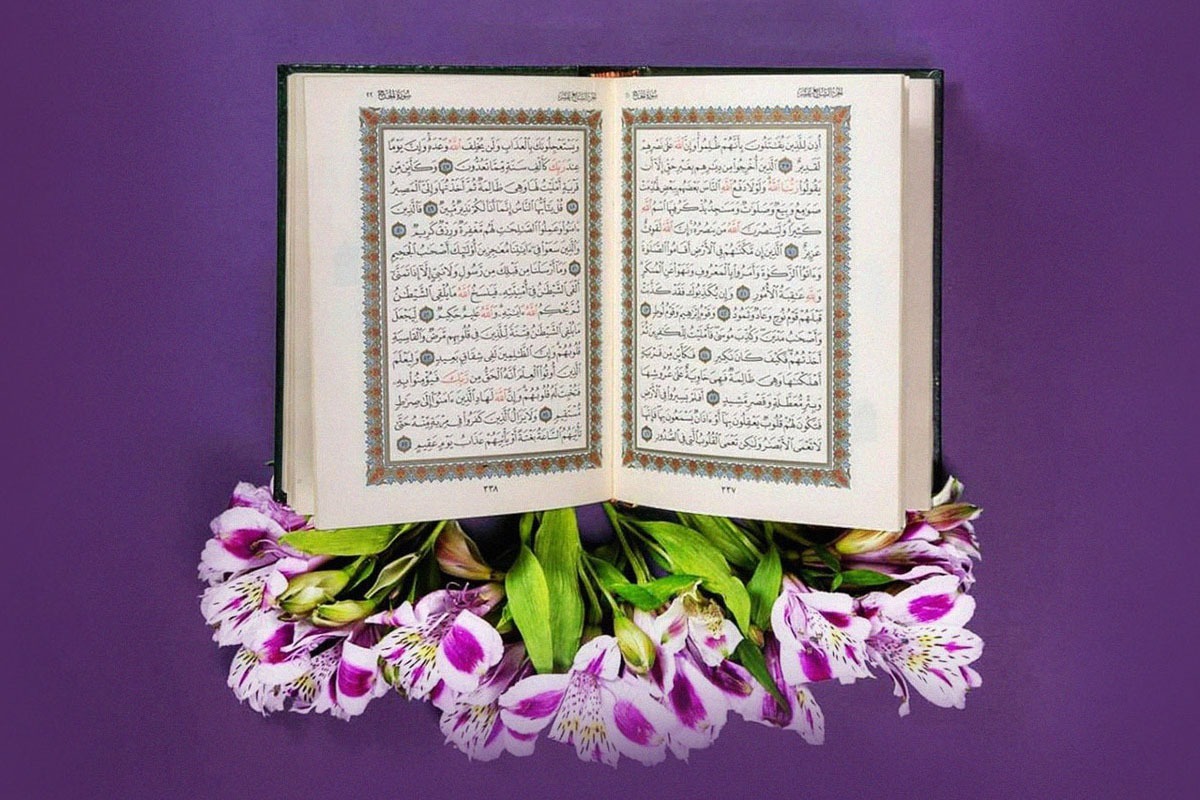 الجزء السابع عشر
سورة الحج
أُذِنَ لِلَّذِينَ يُقَٰتَلُونَ بِأَنَّهُمْ ظُلِمُوا۟ وَإِنَّ ٱللَّهَ عَلَىٰ نَصْرِهِمْ
لَقَدِيرٌ ٣٩ ٱلَّذِينَ أُخْرِجُوا۟ مِن دِيَٰرِهِم بِغَيْرِ حَقٍّ إِلَّآ أَن
يَقُولُوا۟ رَبُّنَا ٱللَّهُ وَلَوْلَا دَفْعُ ٱللَّهِ ٱلنَّاسَ بَعْضَهُم بِبَعْضٍ لَّهُدِّمَتْ
صَوَٰمِعُ وَبِيَعٌ وَصَلَوَٰتٌ وَمَسَٰجِدُ يُذْكَرُ فِيهَا ٱسْمُ ٱللَّهِ
كَثِيرًا وَلَيَنصُرَنَّ ٱللَّهُ مَن يَنصُرُهُۥٓ إِنَّ ٱللَّهَ لَقَوِىٌّ
عَزِيزٌ ٤٠ ٱلَّذِينَ إِن مَّكَّنَّٰهُمْ فِى ٱلْأَرْضِ أَقَامُوا۟ ٱلصَّلَوٰةَ
وَءَاتَوُا۟ ٱلزَّكَوٰةَ وَأَمَرُوا۟ بِٱلْمَعْرُوفِ وَنَهَوْا۟ عَنِ ٱلْمُنكَرِ
وَلِلَّهِ عَٰقِبَةُ ٱلْأُمُورِ ٤١ وَإِن يُكَذِّبُوكَ فَقَدْ كَذَّبَتْ
قَبْلَهُمْ قَوْمُ نُوحٍ وَعَادٌ وَثَمُودُ ٤٢ وَقَوْمُ إِبْرَٰهِيمَ وَقَوْمُ لُوطٍ ٤٣
وَأَصْحَٰبُ مَدْيَنَ وَكُذِّبَ مُوسَىٰ فَأَمْلَيْتُ لِلْكَٰفِرِينَ ثُمَّ
أَخَذْتُهُمْ فَكَيْفَ كَانَ نَكِيرِ ٤٤ فَكَأَيِّن مِّن قَرْيَةٍ
أَهْلَكْنَٰهَا وَهِىَ ظَالِمَةٌ فَهِىَ خَاوِيَةٌ عَلَىٰ عُرُوشِهَا
وَبِئْرٍ مُّعَطَّلَةٍ وَقَصْرٍ مَّشِيدٍ ٤٥ أَفَلَمْ يَسِيرُوا۟ فِى ٱلْأَرْضِ
فَتَكُونَ لَهُمْ قُلُوبٌ يَعْقِلُونَ بِهَآ أَوْ ءَاذَانٌ يَسْمَعُونَ بِهَا فَإِنَّهَا
لَا تَعْمَى ٱلْأَبْصَٰرُ وَلَٰكِن تَعْمَى ٱلْقُلُوبُ ٱلَّتِى فِى ٱلصُّدُورِ ٤٦
٣٣٧
الجزء السابع عشر
سورة الحج ٢٢
وَيَسْتَعْجِلُونَكَ بِٱلْعَذَابِ وَلَن يُخْلِفَ ٱللَّهُ وَعْدَهُۥ وَإِنَّ يَوْمًا
عِندَ رَبِّكَ كَأَلْفِ سَنَةٍ مِّمَّا تَعُدُّونَ ٤٧ وَكَأَيِّن مِّن
قَرْيَةٍ أَمْلَيْتُ لَهَا وَهِىَ ظَالِمَةٌ ثُمَّ أَخَذْتُهَا وَإِلَىَّ ٱلْمَصِيرُ
٤٨ قُلْ يَٰٓأَيُّهَا ٱلنَّاسُ إِنَّمَآ أَنَا۠ لَكُمْ نَذِيرٌ مُّبِينٌ ٤٩ فَٱلَّذِينَ
ءَامَنُوا۟ وَعَمِلُوا۟ ٱلصَّٰلِحَٰتِ لَهُم مَّغْفِرَةٌ وَرِزْقٌ كَرِيمٌ ٥٠
وَٱلَّذِينَ سَعَوْا۟ فِىٓ ءَايَٰتِنَا مُعَٰجِزِينَ أُو۟لَٰٓئِكَ أَصْحَٰبُ ٱلْجَحِيمِ
٥١ وَمَآ أَرْسَلْنَا مِن قَبْلِكَ مِن رَّسُولٍ وَلَا نَبِىٍّ إِلَّآ إِذَا تَمَنَّىٰٓ
أَلْقَى ٱلشَّيْطَٰنُ فِىٓ أُمْنِيَّتِهِۦ فَيَنسَخُ ٱللَّهُ مَا يُلْقِى ٱلشَّيْطَٰنُ
ثُمَّ يُحْكِمُ ٱللَّهُ ءَايَٰتِهِۦ وَٱللَّهُ عَلِيمٌ حَكِيمٌ ٥٢ لِّيَجْعَلَ
مَا يُلْقِى ٱلشَّيْطَٰنُ فِتْنَةً لِّلَّذِينَ فِى قُلُوبِهِم مَّرَضٌ وَٱلْقَاسِيَةِ
قُلُوبُهُمْ وَإِنَّ ٱلظَّٰلِمِينَ لَفِى شِقَاقٍۭ بَعِيدٍ ٥٣ وَلِيَعْلَمَ
ٱلَّذِينَ أُوتُوا۟ ٱلْعِلْمَ أَنَّهُ ٱلْحَقُّ مِن رَّبِّكَ فَيُؤْمِنُوا۟ بِهِۦ
فَتُخْبِتَ لَهُۥ قُلُوبُهُمْ وَإِنَّ ٱللَّهَ لَهَادِ ٱلَّذِينَ ءَامَنُوٓا۟ إِلَىٰ صِرَٰطٍ
مُّسْتَقِيمٍ ٥٤ وَلَا يَزَالُ ٱلَّذِينَ كَفَرُوا۟ فِى مِرْيَةٍ مِّنْهُ حَتَّىٰ
تَأْتِيَهُمُ ٱلسَّاعَةُ بَغْتَةً أَوْ يَأْتِيَهُمْ عَذَابُ يَوْمٍ عَقِيمٍ ٥٥
٣٣٨